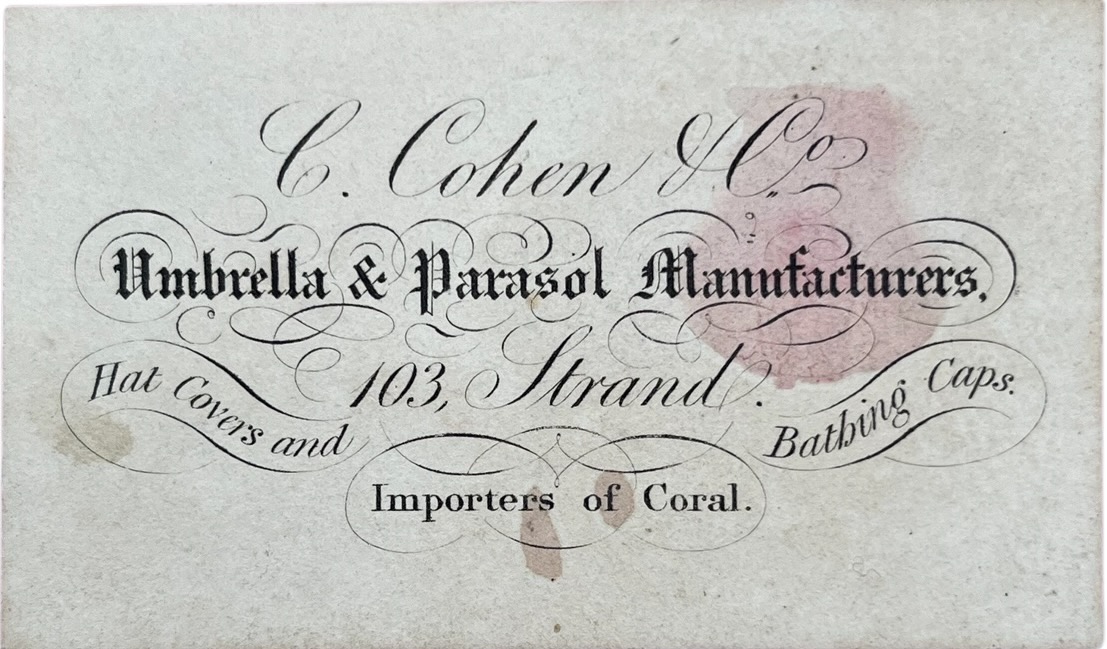 C. Cohen & Co.
Umbrella & Parasol Manufacturers.
103, Strand.
Hat Covers and Bathing Caps.
Importers of Coral.